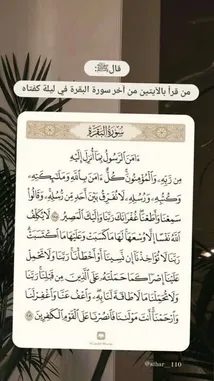 قال ﷺ:
من قرأ بالآيتين من آخر سورة البقرة في ليلة كفتاه
سُورَةُ البَقَرَةِ
ءَامَنَ ٱلرَّسُولُ بِمَآ أُنزِلَ إِلَيْهِ
مِن رَّبِّهِۦ وَٱلْمُؤْمِنُونَۚ كُلٌّ ءَامَنَ بِٱللَّهِ وَمَلَٰٓئِكَتِهِۦ
وَكُتُبِهِۦ وَرُسُلِهِۦ لَا نُفَرِّقُ بَيْنَ أَحَدٍ مِّن رُّسُلِهِۦۚ وَقَالُوا۟
سَمِعْنَا وَأَطَعْنَاۖ غُفْرَانَكَ رَبَّنَا وَإِلَيْكَ ٱلْمَصِيرُ ٢٨٥ لَا يُكَلِّفُ
ٱللَّهُ نَفْسًا إِلَّا وُسْعَهَاۚ لَهَا مَا كَسَبَتْ وَعَلَيْهَا مَا ٱكْتَسَبَتْۗ
رَبَّنَا لَا تُؤَاخِذْنَآ إِن نَّسِينَآ أَوْ أَخْطَأْنَاۚ رَبَّنَا وَلَا تَحْمِلْ
عَلَيْنَآ إِصْرًا كَمَا حَمَلْتَهُۥ عَلَى ٱلَّذِينَ مِن قَبْلِنَاۚ رَبَّنَا
وَلَا تُحَمِّلْنَا مَا لَا طَاقَةَ لَنَا بِهِۦۖ وَٱعْفُ عَنَّا وَٱغْفِرْ لَنَا
وَٱرْحَمْنَآۚ أَنتَ مَوْلَىٰنَا فَٱنصُرْنَا عَلَى ٱلْقَوْمِ ٱلْكَٰفِرِينَ ٢٨٦